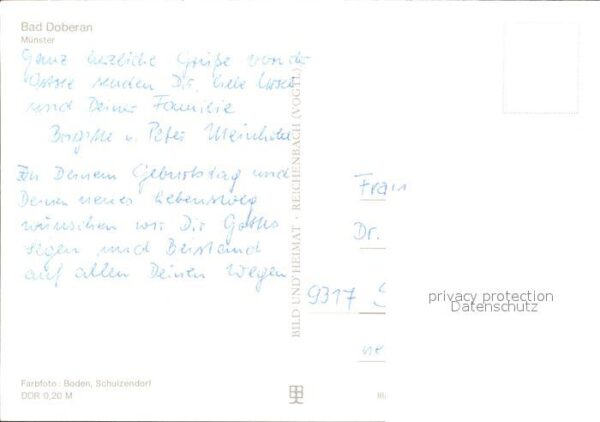 Bad Doberan
Münster
Ganz herzliche Grüße von der
Ostsee senden Dir, liebe
und Deiner Familie
Brigitte u. Peter
Zu Deinem Geburtstag und
Deinen neuen Lebensweg
wünschen wir Dir Gottes
Segen und Beistand
auf allen Deinen Wegen
BILD UND HEIMAT · REICHENBACH (VOGTL
Frau
Dr.
9317 S
privacy protection
Datenschutz
Farbfoto: Boden, Schulzendorf
DDR 0,20 M